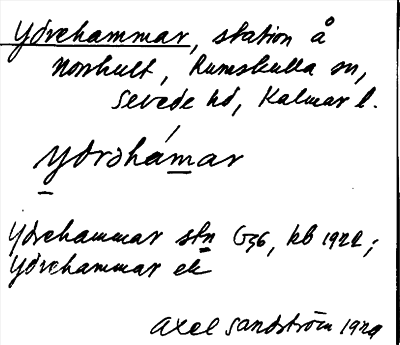 Ydrehammar, station å
Norrhult, Rumskulla sn,
Sevede hd, Kalmar l.
ydrəhámar
Ydrehammar stn G36, kb 1922;
Ydrehammar ek
Axel Sandström 1929